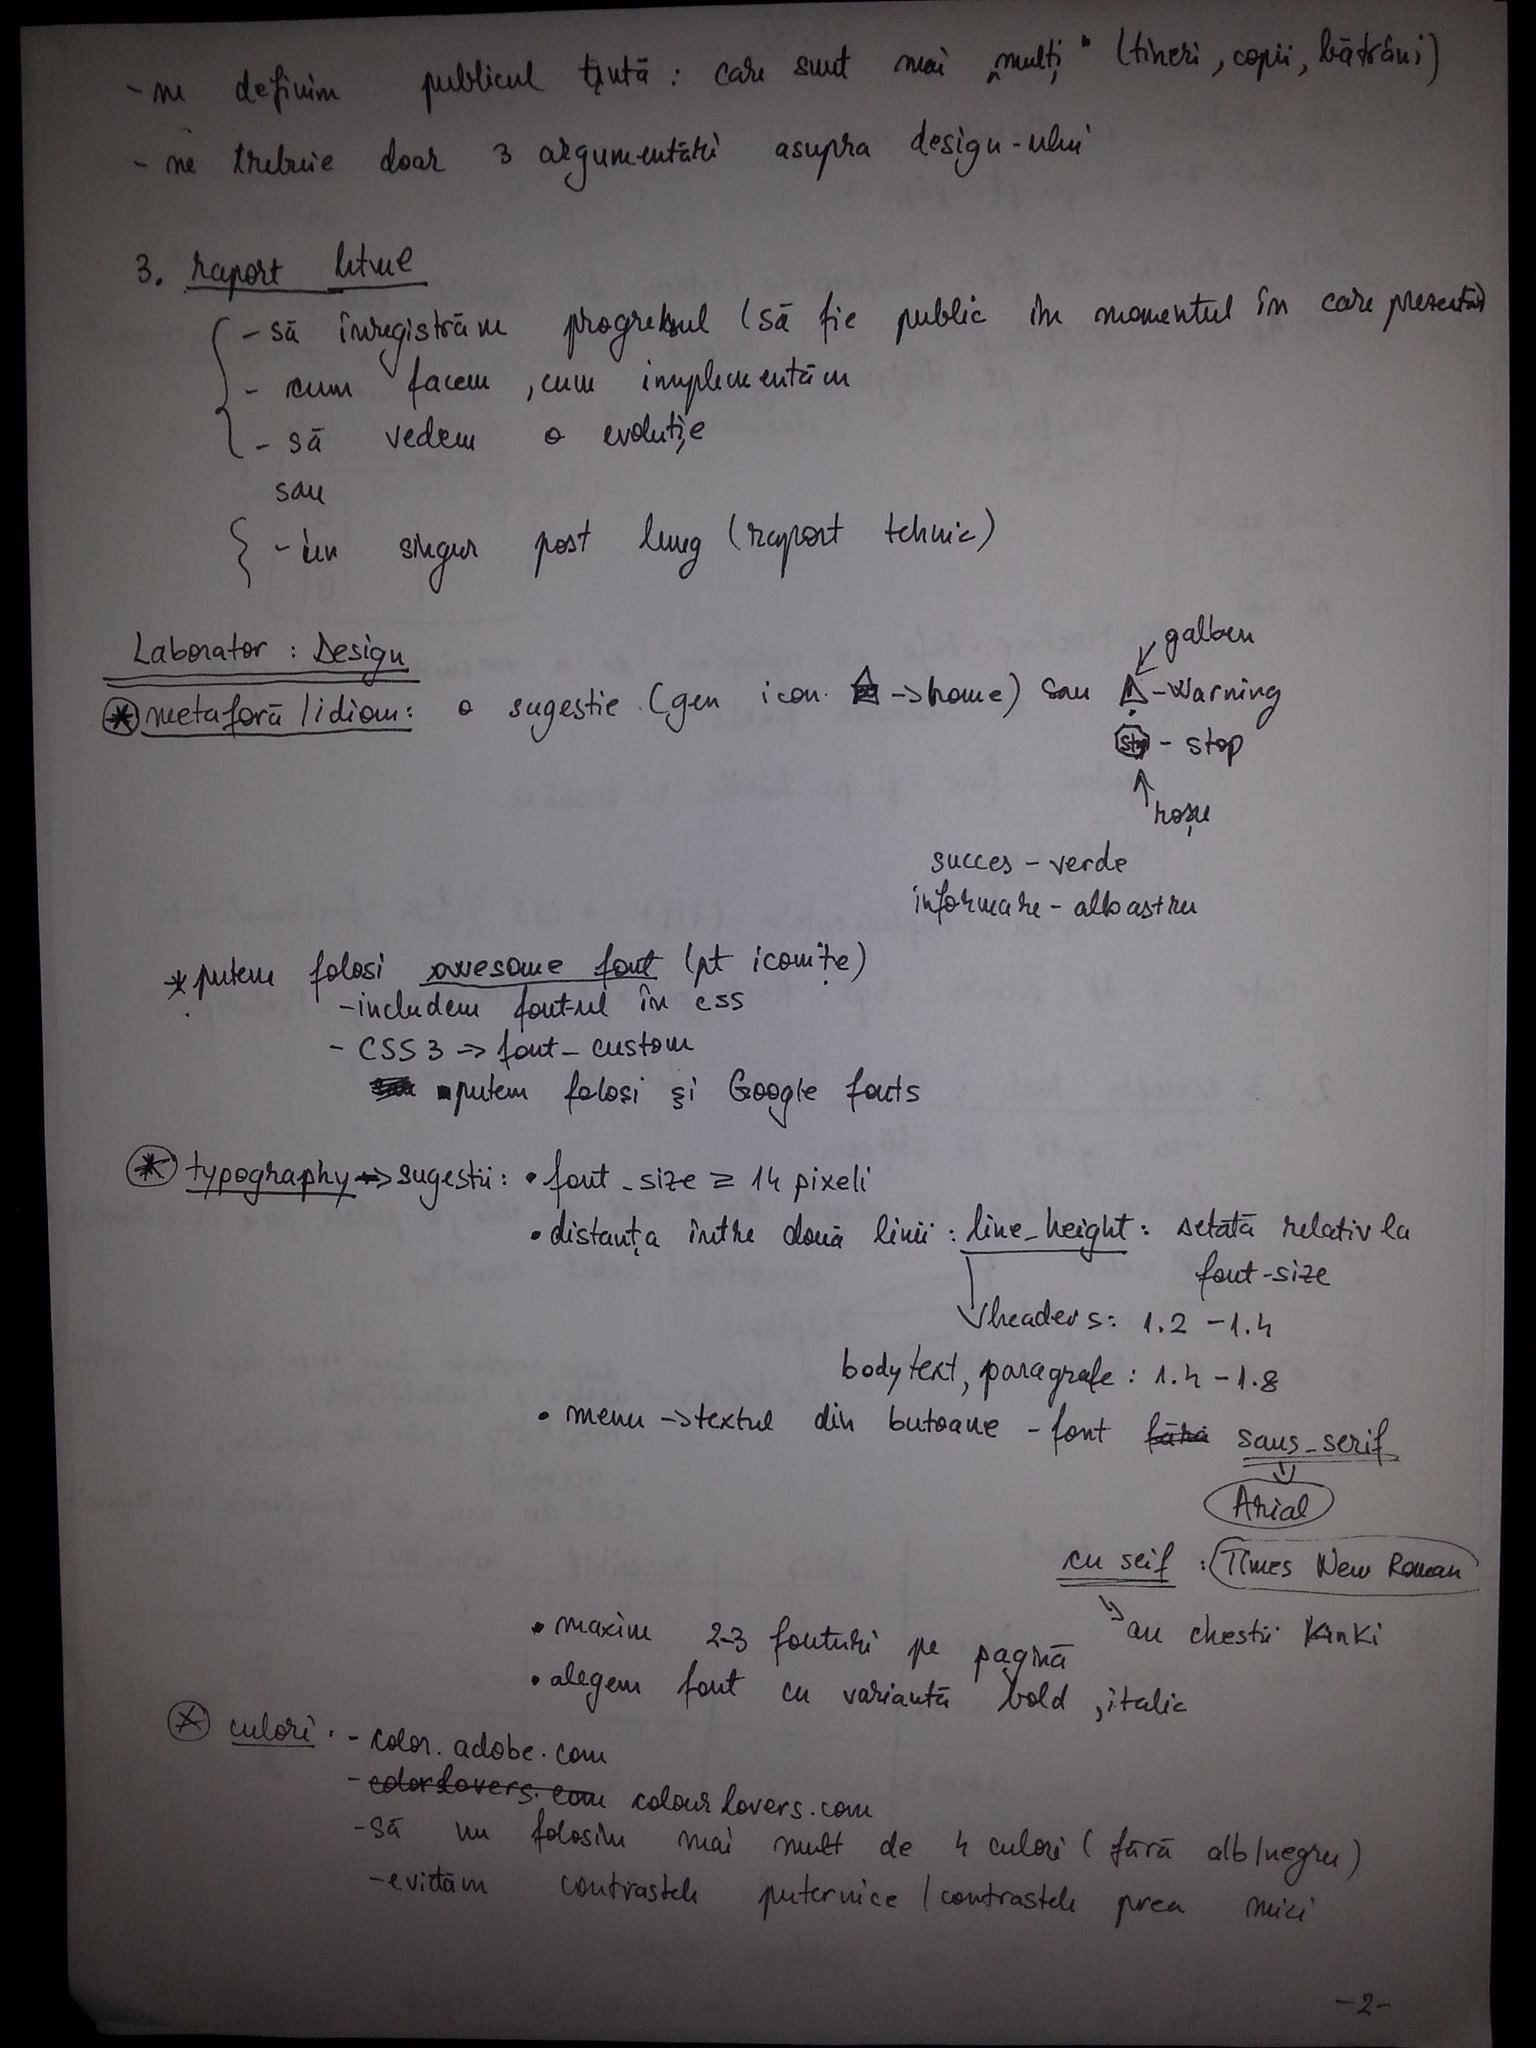 - ne definim publicul țintă : care sunt mai "mulți" (tineri, copii, bătrâni)
- ne trebuie doar 3 argumentări asupra design-ului
3. raport html
- să înregistrăm progresul (să fie public în momentul în care prezentăm)
- cum facem, cum implementăm
- să vedem o evoluție
sau
- un singur post lung (raport tehnic)
galben
Laborator : Design
* metaforă / idiom : o sugestie (gen icon. -> home) sau ! - Warning
Stop - stop
roșu
succes - verde
informare - albastru
* putem folosi awesome font (pt iconițe)
- includem font-ul în css
- CSS 3 => font_custom
▪ putem folosi și Google fonts
* typography -> sugestii : • font_size ≥ 14 pixeli
• distanța între două linii : line_height : setată relativ la
font-size
headers : 1.2 - 1.4
body text, paragrafe : 1.4 - 1.8
• menu -> textul din butoane - font sans_serif
Arial
cu seif : Times New Roman
au chestii kinki
• maxim 2-3 fonturi pe pagină
• alegem font cu variantă bold, italic
* culori : - color.adobe.com
- colorlovers.com colourlovers.com
- să nu folosim mai mult de 4 culori (fără alb/negru)
- evităm contrastele puternice / contrastele prea mici
- 2 -